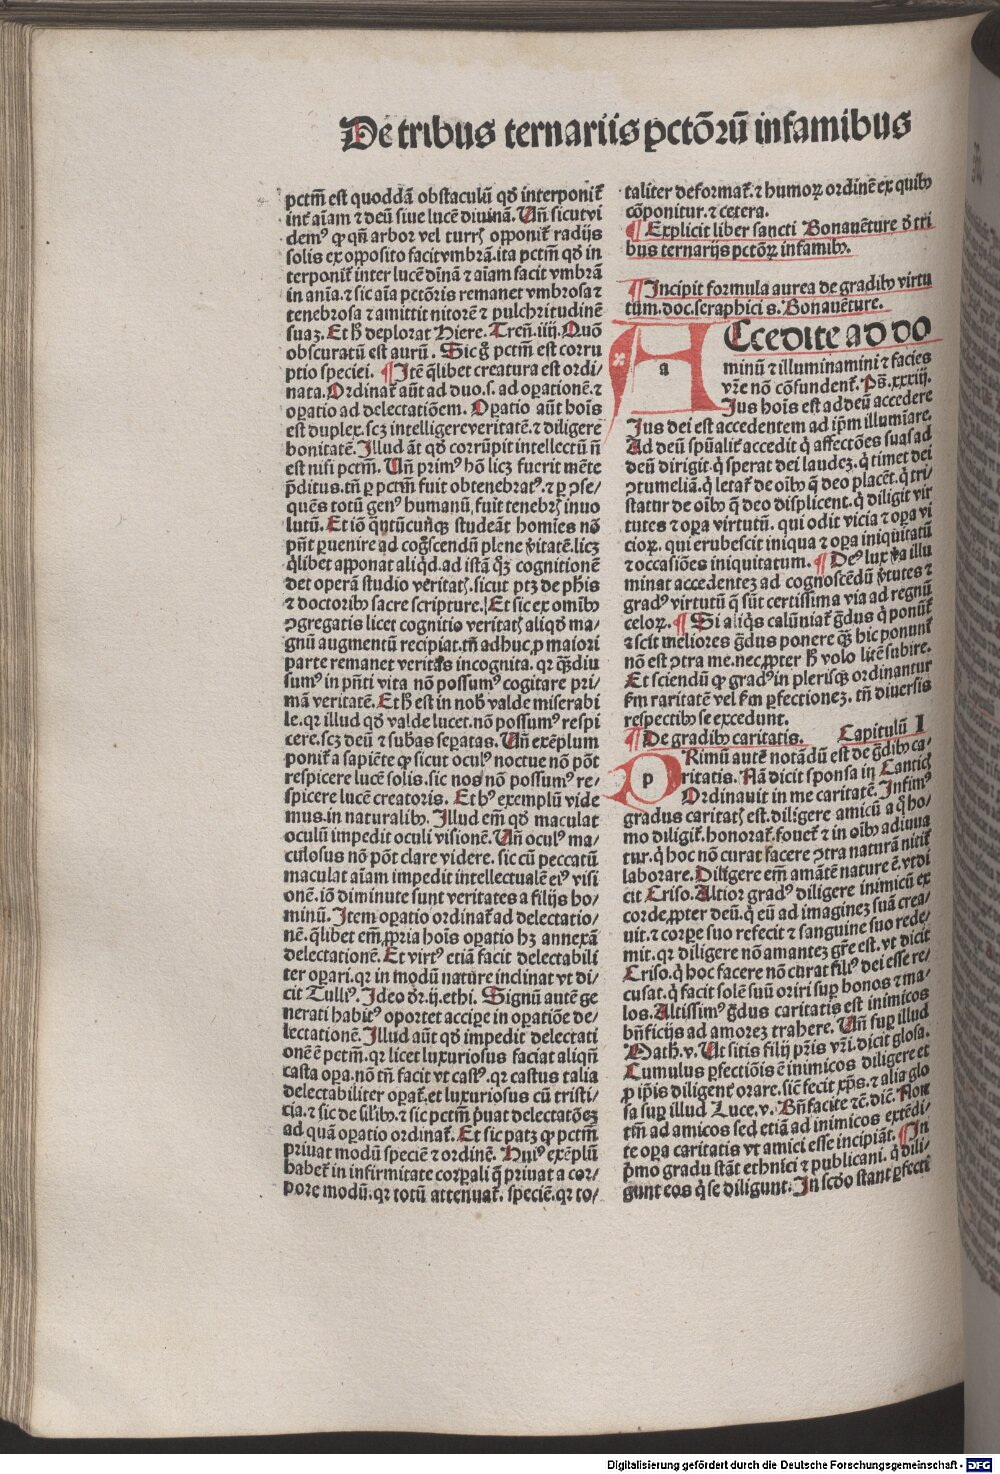 De tribus ternariis pctōꝝ infamibus
pctm̄ est quoddā obstaculū qd̄ interponit᷑
int᷑ aīam ⁊ deū siue lucē diuinā. Uñ sicut vi
demꝰ ꝙ qñ arbor vel turrꝭ opponit᷑ radijs
solis ex opposito facit vmbrā. ita pctm̄ qd̄ in
terponit᷑ inter lucē dīnā ⁊ aīam facit vmbrā
in aīa. ⁊ sic aīa pctōris remanet vmbrosa ⁊
tenebrosa ⁊ amittit nitorē ⁊ pulchritudinē
suaꝫ. Et h̄ deplorat Hiere. Treñ. iiij. Quō
obscuratū est aurū. Sic g̊ pctm̄ est corru
ptio speciei. ¶ Itē q̄libet creatura est ordi-
nata. Ordinat᷑ aūt ad duo. s. ad oꝑationē. ⁊
oꝑatio ad delectatiōem. Oꝑatio aūt hoīs
est duplex. scꝫ intelligere veritatē. ⁊ diligere
bonitatē. Illud āt qd̄ corrūpit intellectū ñ
est nisi pctm̄. Uñ primꝰ hō licꝫ fuerit mēte
p̄ditus. tñ ꝑ pctm̄ fuit obtenebratꝰ. ⁊ ꝑ ꝯse/
quēs totū genꝰ humanū, fuit tenebrꝭ inuo
lutū. Et iō q̄ntūcūqꝫ studeāt homīes nō
pñt ꝑuenire ad cog̊scendū plene v̄itatē. licꝫ
q̄libet apponat aliqd̄. ad istā qꝫ cognitionē
det operā studio veritatꝭ. sicut ptꝫ de phīs
⁊ doctoribꝰ sacre scripture. Et sic ex omībꝰ
ꝯgregatis licet cognitio veritatꝭ aliqd̄ ma-
gnū augmentū recipiat. tñ adhuc ꝓ maiori
parte remanet veritas incognita. qꝛ qꝫdiu
sumꝰ in pñti vita nō possumꝰ cogitare pri-
mā veritatē. Et h̄ est in nob̄ valde miserabi
le. qꝛ illud qd̄ valde lucet. nō possumꝰ respi
cere. scꝫ deū ⁊ subas seꝑatas. Uñ exēplum
ponit᷑ a sapiēte ꝙ sicut oculꝰ noctue nō pōt
respicere lucē solis. sic nos nō possumꝰ re/
spicere lucē creatoris. Et hꝰ exemplū vide
mus. in naturalibꝰ. Illud em̄ qd̄ maculat
oculū impedit oculi visionē. Uñ oculꝰ ma/
culosus nō pōt clare videre. sic cū peccatū
maculat aīam impedit intellectualē eiꝰ visi
onē. iō diminute sunt veritates a filijs ho/
minū. Item oꝑatio ordinat᷑ ad delectatio/
nē. q̄libet em̄ ꝓpria hoīs oꝑatio hꝫ annexā
delectationē. Et virtꝰ etiā facit delectabili
ter oꝑari. qꝛ in modū nature inclinat vt di-
cit Tulliꝰ. Ideo dꝛ. ij. ethi. Signū autē ge
nerati habitꝰ oportet accipe in oꝑatiōe de-
lectationē. Illud aūt qd̄ impedit delectati
onē ē pctm̄. qꝛ licet luxuriosus faciat aliqñ
casta oꝑa. nō tñ facit vt castꝰ. qꝛ castus talia
delectabiliter oꝑat᷑. et luxuriosus cū tristi-
cia. ⁊ sic de silībꝰ. ⁊ sic pctm̄ p̄uat delectatōeꝫ
ad quā oꝑatio ordinat᷑. Et sic patꝫ ꝙ pctm̄
priuat modū speciē ⁊ ordinē. Huiꝰ exēplū
habet᷑ in infirmitate corꝑali q̄ priuat a cor-
pore modū. qꝛ totū attenuat᷑. speciē. qꝛ to/
taliter deformat᷑. ⁊ humoꝝ ordinē ex quibꝰ
cōponitur. ⁊ cetera.
¶ Explicit liber sancti Bonauēture d̄ tri
bus ternarijs pctōꝝ infamibꝰ.
¶ Incipit formula aurea de gradibꝰ virtu
tum. doc. seraphici s. Bonauēture.
a
Ccedite ad do
minū ⁊ illuminamini ⁊ facies
vr̄e nō cōfundent᷑. Ps̄. xxxiij.
Ius hoīs est ad deū accedere
Ius dei est accedentem ad ip̄m illumīare.
Ad deū spūalit᷑ accedit q̇ affectōes suas ad
deū dirigit. q̇ sperat dei laudeꝫ. q̇ timet dei
ꝯtumeliā. q̇ letat᷑ de oībꝰ q̄ deo placēt. q̇ tri/
statur de oībꝰ q̄ deo displicent. q̇ diligit vir
tutes ⁊ oꝑa virtutū. qui odit vicia ⁊ oꝑa vi
cioꝝ. qui erubescit iniqua ⁊ oꝑa iniquitatū
⁊ occasiōes iniquitatum. ¶ Deꝰ lux v̄a illu
minat accedenteꝫ ad cognoscēdū v̄tutes ⁊
gradꝰ virtutū q̄ sūt certissima via ad regnū
celoꝝ. ¶ Si aliq̇s calūniat᷑ g̊dus q̇ ponūt᷑
⁊ scit meliores g̊dus ponere qꝫ hic ponunt᷑
nō est ꝯtra me. nec ꝓpter h̄ volo litē subire.
Et sciendū ꝙ gradꝰ in plerisqꝫ ordinantur
ẜm raritatē vel ẜm ꝑfectioneꝫ. tñ diuersis
respectibꝰ se excedunt.
¶ De gradibꝰ caritatis. Capitulū I
p
Rimū autē notādū est de g̊dibꝰ ca-
ritatis. Nā dicit sponsa in Canticꝭ
Ordinauit in me caritatē. Infimꝰ
gradus caritatꝭ est. diligere amicū a q̊ ho/
mo diligit᷑. honorat᷑. fouet᷑ ⁊ in oībꝰ adiuua
tur. q̇ hoc nō curat facere ꝯtra naturā nitit᷑
laborare. Diligere em̄ amātē nature ē. vt di
cit Criso. Altior gradꝰ diligere inimicū ex
corde ꝓpter deū. q̇ eū ad imagineꝫ suā crea/
uit. ⁊ corpe suo refecit ⁊ sanguine suo rede/
mit. qꝛ diligere nō amanteꝫ gr̄e est. vt dicit
Criso. q̇ hoc facere nō curat filiꝰ dei esse re/
cusat. q̇ facit solē suū oriri suꝑ bonos ⁊ ma/
los. Altissimꝰ g̊dus caritatis est inimicos
bn̄ficijs ad amoreꝫ trahere. Uñ suꝑ illud
Math. v. Ut sitis filij pr̄is vr̄i. dicit glosa.
Cumulus ꝑfectiōis ē inimicos diligere et
ꝓ ip̄is diligent᷑ orare. sic̄ fecit xp̄s. ⁊ alia glo
sa suꝑ illud Luce. v. Bn̄facite ⁊c̄. dic̄. Non
tm̄ ad amicos sed etiā ad inimicos extēdi/
te oꝑa caritatis vt amici esse incipiāt. ¶ In
p̄mo gradu stāt ethnici ⁊ publicani. q̇ dili-
gunt eos q̇ se diligunt. In scd̄o stant ꝑfecti
Digitalisierung gefördert durch die Deutsche Forschungsgemeinschaft - DFG